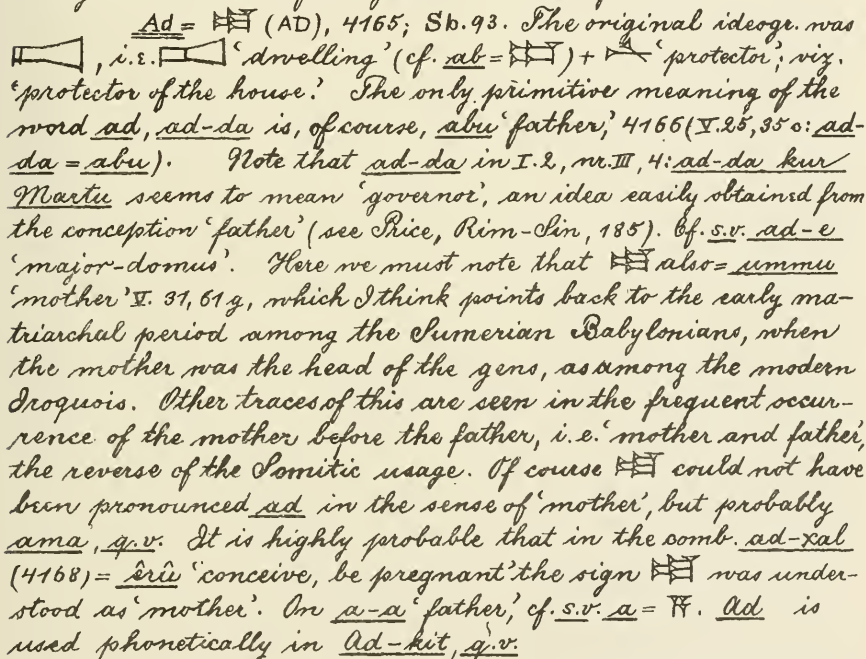 Ad = 𒀜 (AD), 4165; Sb. 93. The original ideogr. was
, i.e. 'dwelling' (cf. ab = 𒀊) + 'protector'; viz.
'protector of the house.' The only primitive meaning of the
word ad, ad-da is, of course, abu 'father,' 4166 (V. 25, 35c: ad-
da = abu). Note that ad-da in I. 2, nr. III, 4: ad-da kur
Martu seems to mean 'governor', an idea easily obtained from
the conception 'father' (see Price, Rim-Sin, 185). Cf. s.v. ad-e
'major-domus'. Here we must note that 𒀜 also = ummu
'mother' V. 31, 61g, which I think points back to the early ma-
triarchal period among the Sumerian Babylonians, when
the mother was the head of the gens, as among the modern
Iroquois. Other traces of this are seen in the frequent occur-
rence of the mother before the father, i.e. 'mother and father,'
the reverse of the Semitic usage. Of course 𒀜 could not have
been pronounced ad in the sense of 'mother', but probably
ama, q.v. It is highly probable that in the comb. ad-xal
(4168) = êrû 'conceive, be pregnant' the sign 𒀜 was under-
stood as 'mother'. On a-a 'father,' cf. s.v. a = 𒀀. Ad is
used phonetically in Ad-kit, q.v.